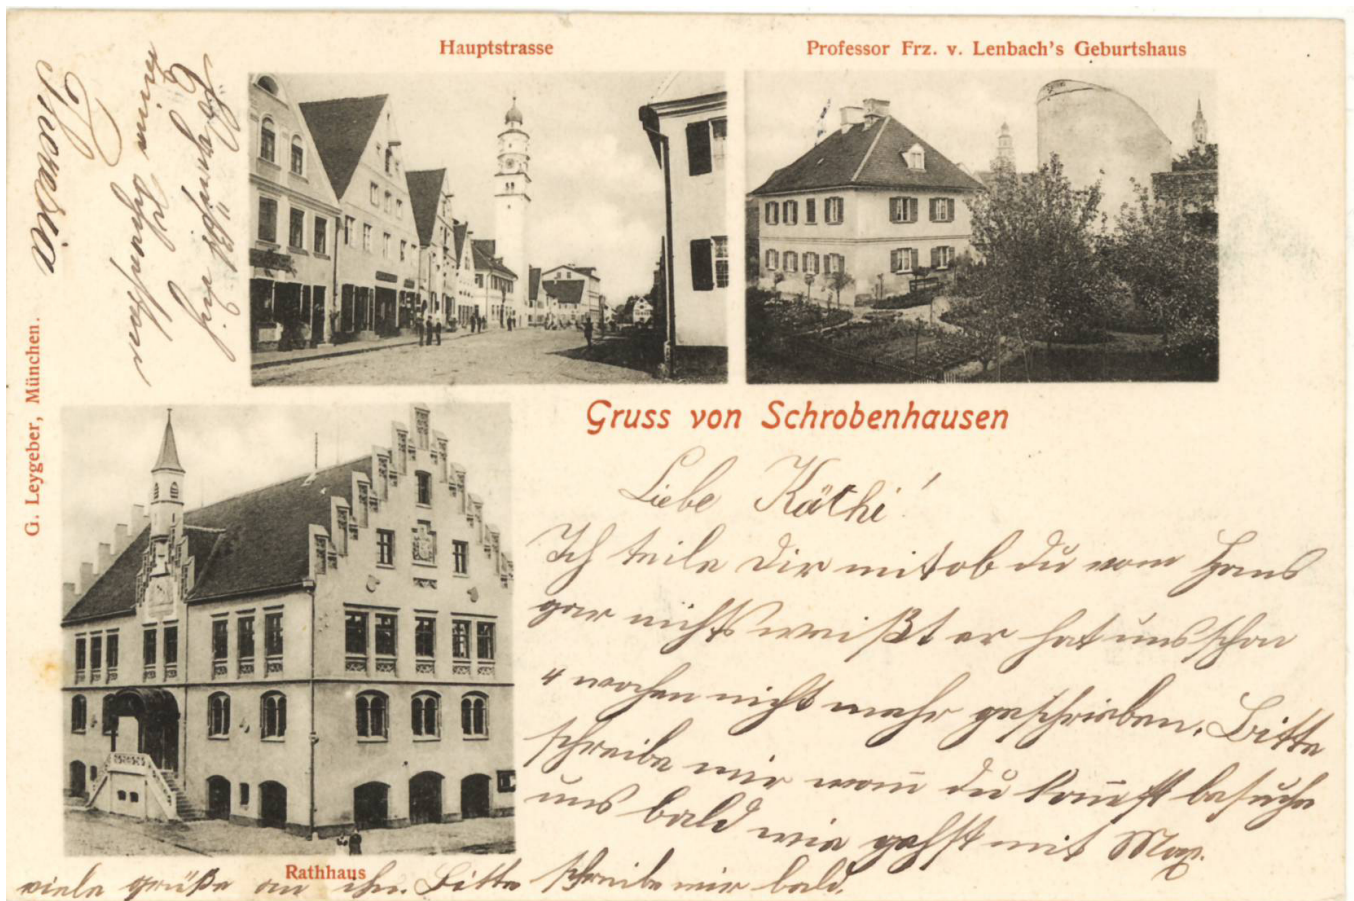 Hauptstrasse
Professor Frz. v. Lenbach's Geburtshaus
Gruss von Schrobenhausen
Liebe Käthi!
Ich teile dir mit ob du vom Hans
gar nichts weißt er hat uns schon
4 wochen nicht mehr geschrieben. Bitte
schreibe mir wan̄ du kom̄st besuche
uns bald wie gehst mit Max.
viele grüße an ihn. Bitte schreibe mir bald.
Rathhaus
G. Leygeber, München.
Theresia